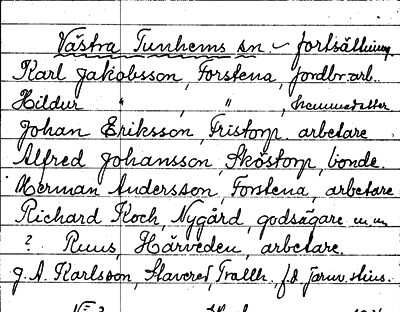 Västra Tunhems sn - fortsättning.
Karl Jakobsson, Forstena, jordbr. arb.
Hildur " , " , hemmadotter
Johan Eriksson, Tristorp, arbetare
Alfred Johansson, Sköstorp, bonde.
Herman Andersson, Forstena, arbetare
Richard Koch, Nygård, godsägare m.m.
? Ruus, Härveden, arbetare.
J. A. Karlsson, Stavered, Trollh., f.d. järnv.